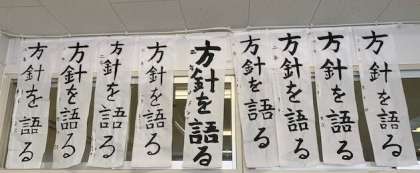 方針を語る
方針を語る
方針を語る
方針を語る
方針を語る
方針を語る
方針を語る
方針を語る
方針を語る